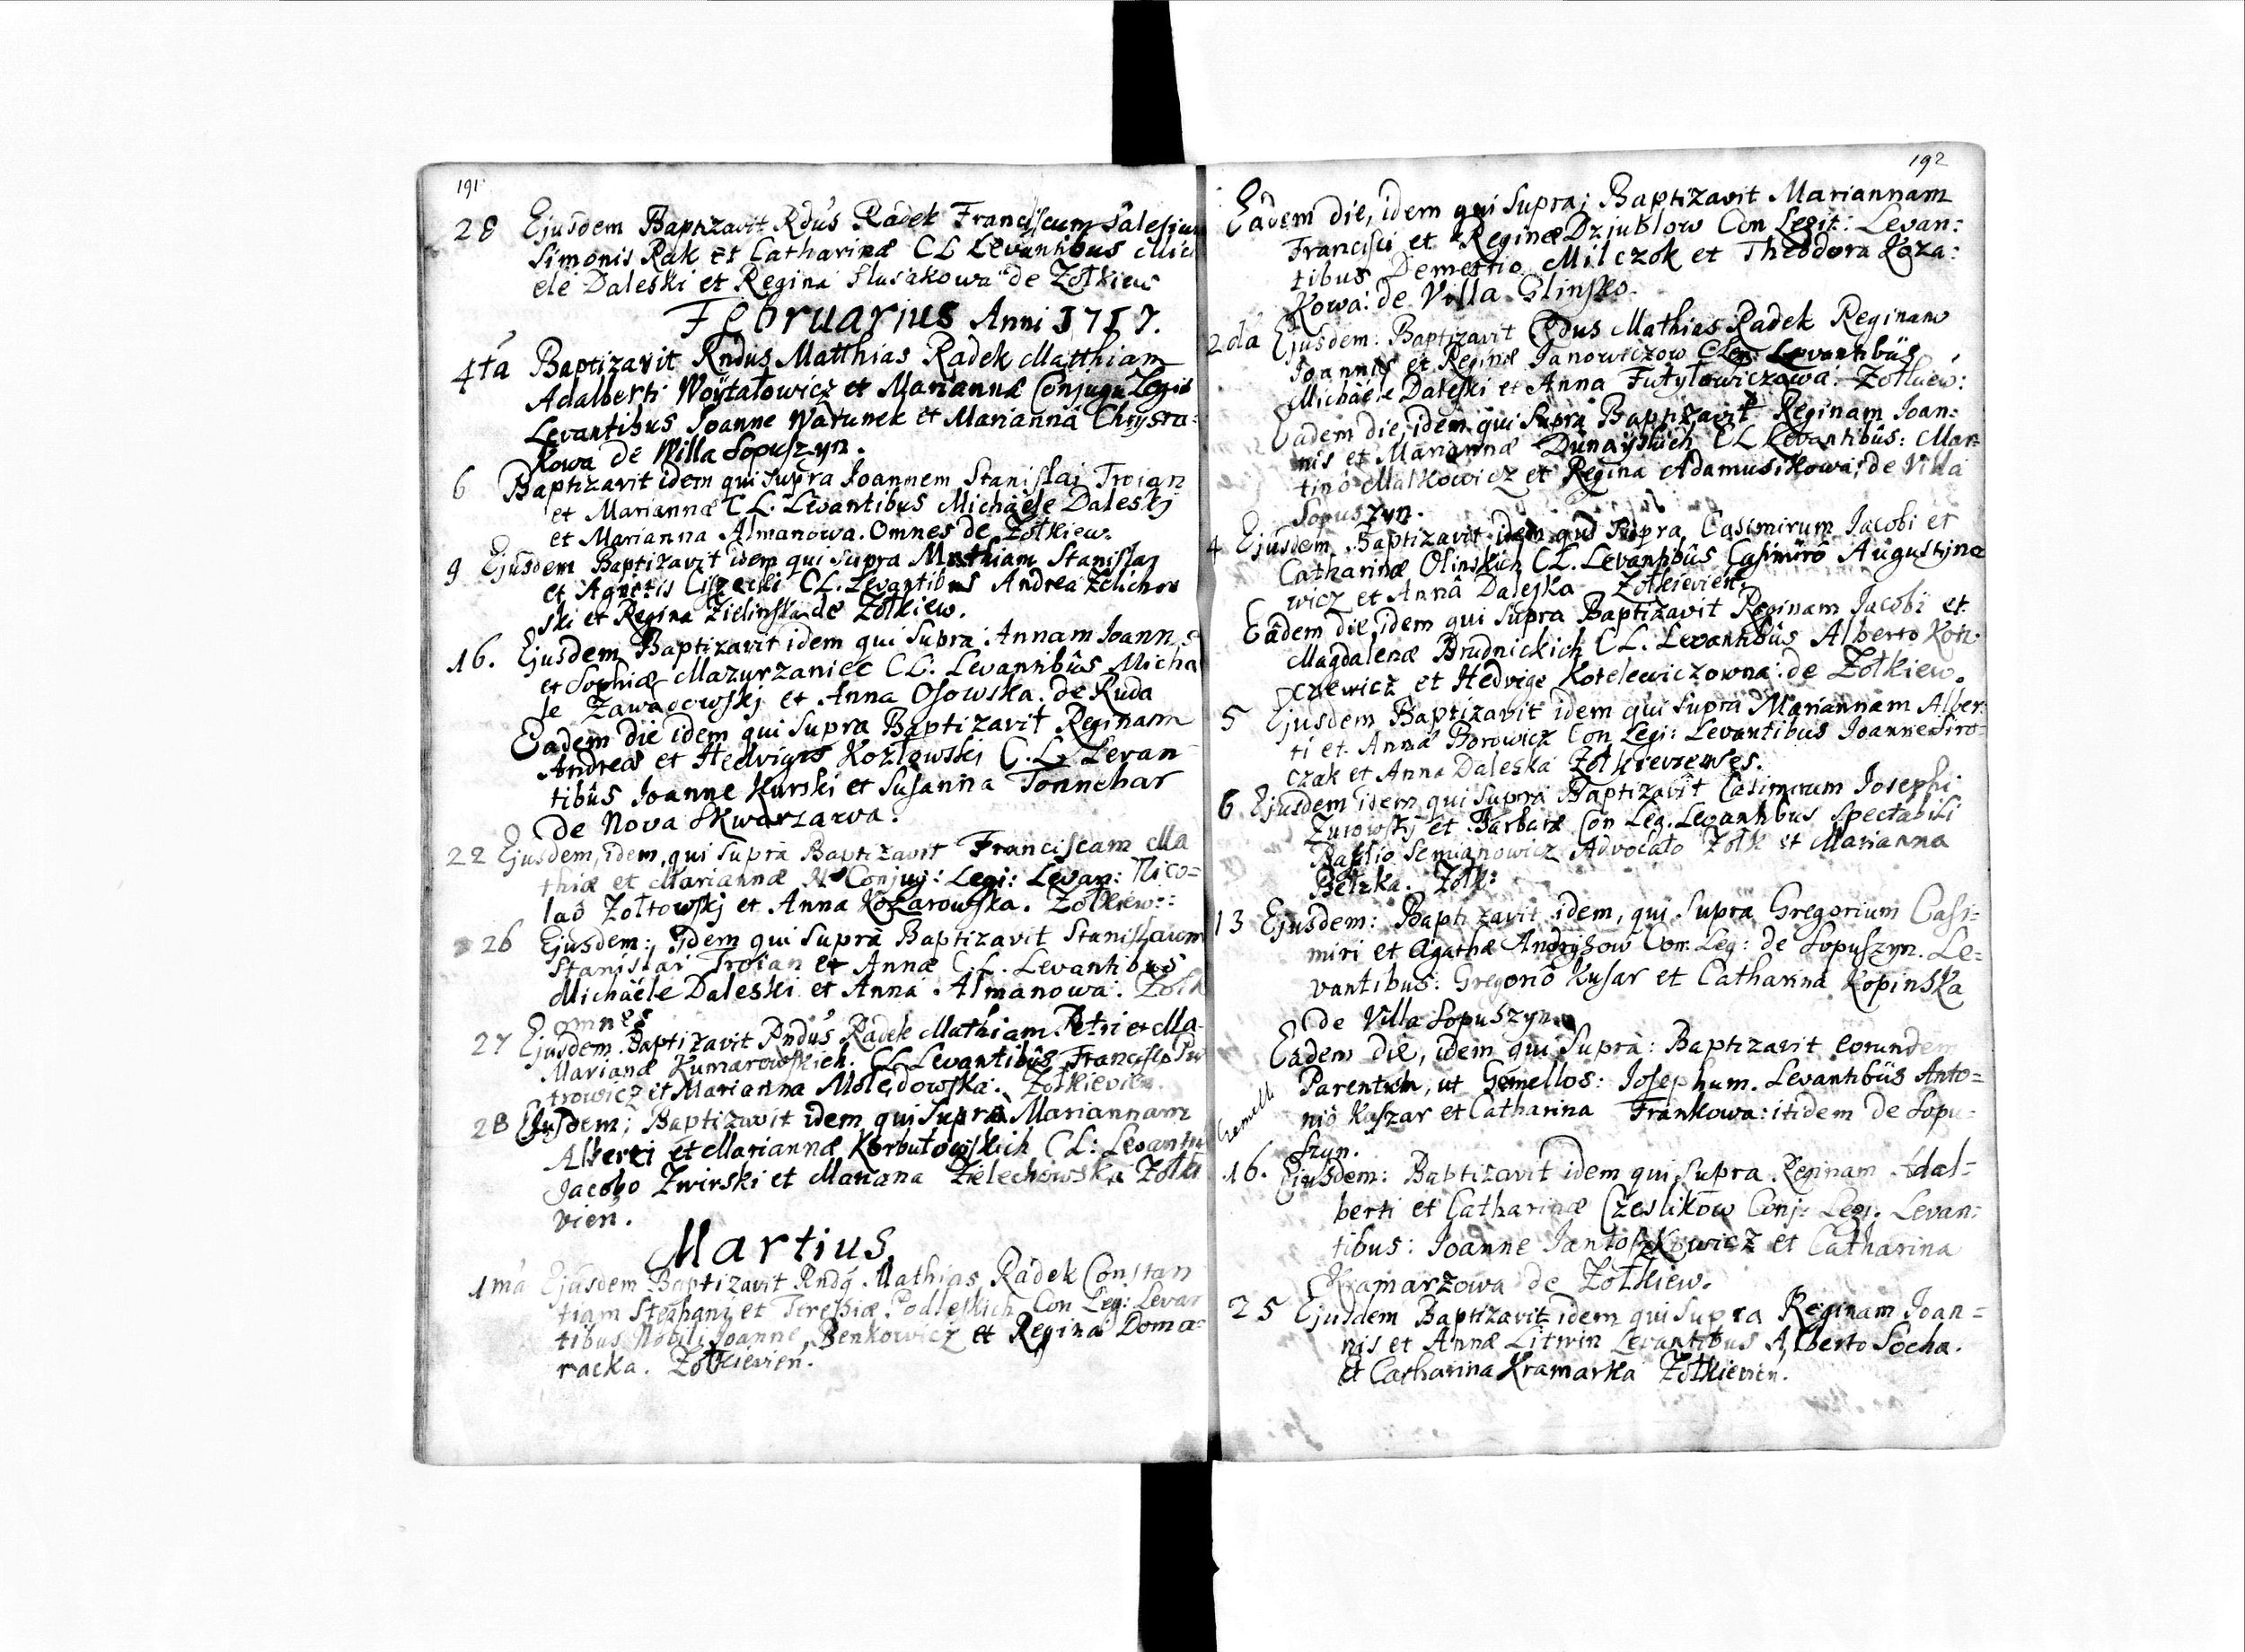 191
28 Ejusdem Baptizavit Rdus Radek Franciscum Salesium
Simonis Rak et Catharinæ CL Levantibus Mich
ele Daleski et Regina Slusakowa de Zołkiew
Februarius Anni 1717.
4ta Baptizavit Rndus Matthias Radek Matthiam
Adalberti Woytałowicz et Mariannæ Conjugu Legit
Levantibus Joanne Watunek et Marianna Chrysta:
Kowa de Willa Sopuszyn.
6 Baptizavit idem qui Supra Joannem Stanislai Troian
et Mariannæ C L. Levantibus Michaele Daleskj
et Marianna Almanowa. Omnes de Zołkiew.
9 Ejusdem Baptizavit idem qui Supra Mathiam Stanislaj
et Agnetis CL. Levantibus Andrea Zelichow
ski et Regina Zielinska de Zołkiew.
16. Ejusdem Baptizavit idem qui Supra Annam Joann
et Sophiæ Mazurzaniec CL: Levantibus Micha
le Zawadowskj et Anna Osowska. de Ruda
Eadem die idem qui Supra Baptizavit Reginam
Andreæ et Hedvigis Kozłowski C. L. Levan
tibus Joanne Kurski et Susanna Tonnebar
de Nova Skwarzawa.
22 Ejusdem, idem, qui Supra Baptizavit Franciscam Ma
thiæ et Mariannæ N Conjug: Legi: Levan: Nico=
lao Zołtowskj et Anna Kozarowska. Zołkiew:
26 Ejusdem: idem qui Supra Baptizavit Stanislaum
Stanislai Troian et Annæ C.L. Levantibus
Michaele Daleski et Anna Almanowa. Zołk
omnes
27 Ejusdem Baptizavit Rndus Radek Mathiam Petri et Ma
Marianæ Kumarowskich. CL Levantibus Francisco Pio
trowicz et Marianna Moledowska. Zołkievien.
28 Ejusdem; Baptizavit idem qui Supra Mariannam
Alberti et Mariannæ Korbutowskich CL: Levantib
Jacobo Zwirski et Mariana Zielechowska Zołki
vien.
Martius
1ma Ejusdem Baptizavit Rndq Mathias Radek Constan
tiam Stephani et Teressiæ Podleskich Con Leg: Levan
tibus Nobili Joanne Benkowicz et Regina Doma=
racka. Zołkievien.
192
Eadem die, idem qui Supra; Baptizavit Mariannam
Francisci et Reginæ Dzjublow Con Legit: Levan:
tibus Demetrio Milczok et Theodora Koza:
Kowa. de Villa Glinsko.
2da Ejusdem: Baptizavit Rdus Mathias Radek Reginam
Joannis et Reginæ Janowiczow CLeg: Levantibus
Michaele Daleski et Anna Futyłowiczowa. Zołkiew:
Eadem die, idem qui Supra Baptizavit Reginam Joan:
nis et Mariannæ Dunayskich CL Levantibus: Mar
tino Malkowicz et Regina Adamusikowa; de Villa
Sopuszyn.
4 Ejusdem Baptizavit idem qui Supra Casimirum Jacobi et
Catharinæ Olinskich CL. Levantibus Casimiro Augustyno
wicz et Anna Daleska Zołkievien
Eadem die, idem qui Supra Baptizavit Reginam Jacobi et
Magdalenæ Brudnickich CL. Levantibus Alberto Kon
czewicz et Hedvige Kotelewiczowna. de Zołkiew.
5 Ejusdem Baptizavit idem qui Supra Mariannam Alber
ti et Annæ Borowicz Con Legi: Levantibus Joanne Siro
czak et Anna Daleska Zołkievienses.
6 Ejusdem idem qui Supra Baptizavit Casimirum Josephi
Zurowskj et Barbaræ Con Leg. Levantibus Spectabili
Basilio Semianowicz Advocato Zołk et Marianna
Belzka. Zołk:
13 Ejusdem: Baptizavit idem, qui Supra Gregorium Casi=
miri et Agathæ Andrysow Con: Leg: de Sopuszyn. Le=
vantibus: Gregorio Kusar et Catharina Kopinska
de Villa Sopuszyn.
Eadem die, idem qui Supra: Baptizavit eorundem
Gemelli Parentum, ut Gemellos: Josephum. Levantibus Anto=
nio Kaszar et Catharina Frankowa: itidem de Sopu=
szyn.
16. Ejusdem: Baptizavit idem qui Supra Reginam Adal=
berti et Catharinæ Czeslikow Conj: Legi. Levan:
tibus: Joanne Jantoszkowicz et Catharina
Kramarzowa de Zołkiew.
25 Ejusdem Baptizavit idem qui Supra Reginam Joan=
nis et Annæ Litwin Levantibus Alberto Socha.
et Catharina Kramarka Zołkievien.